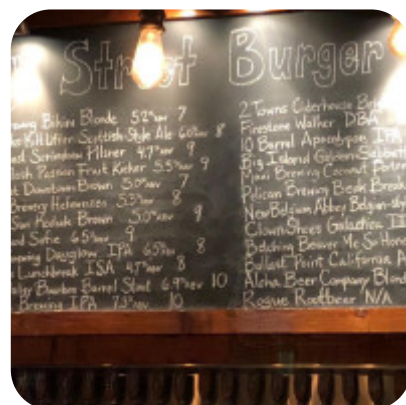 Street Burger
Bikini Blonde 5.2% ABV 7
Kilt Lifter Scottish Style Ale 6.0% ABV 8
Scrimshaw Pilsner 4.7% ABV 9
Passion Fruit Kicker 5.5% ABV 9
Downtown Brown 5.0% ABV 7
Brewery Hefeweizen 5.3% ABV 8
Kodiak Brown 5.0% ABV 9
6.5% ABV 9
Dawn IPA 8
Lunchbreak ISA 4.7% ABV 8
Bourbon Barrel Stout 6.9% ABV 10
Brewing IPA 7.3% ABV 10
2 Towns Ciderhouse
Firestone Walker DBA
10 Barrel Apocalypse IPA
Big Island
Maui Brewing Coconut Porter
Pelican Brewing Beak Break
New Belgium Abbey Belgian-sty
Clown Shoes Galactica II
Belching Beaver Me So Hone
Ballast Point California A
Aloha Beer Company Blond
Rogue Rootbeer N/A